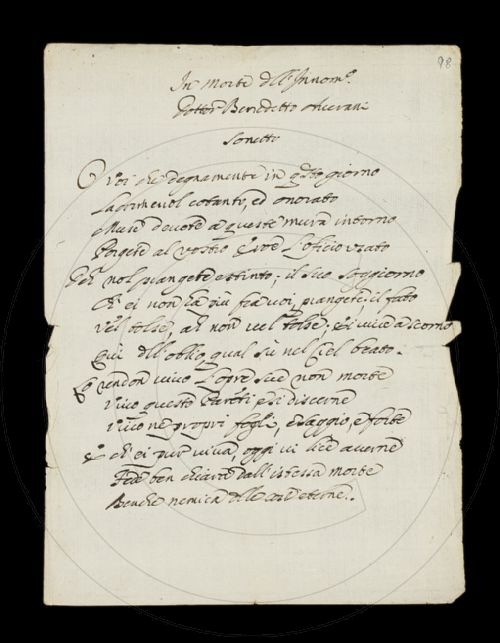 98
In Morte dell' Innom.º
Dottor Benedetto Averani
Sonetto
O Voi che degnamente in q.sto giorno
Lagrimevol cotanto, ed onorato
Muse devote a queste mura intorno
Porgete al vostro L'oficio usato
Deh nol piangete estinto; il suo soggiorno
Ch' ei non fa più fra voi, piangete; il fato
Vel tolse, ah non vel tolse; ei vive a scorno
Qui dell' oblio, qual sù nel Ciel beato.
vivo L'opre sue non morte
Vivo questo e si discerne
Vivo ne propri fogli, e saggio, e forte
E ch' ei pur viva, oggi vi lice averne
Fede ben chiara dall' istessa morte
Benche nemica delle cose eterne.